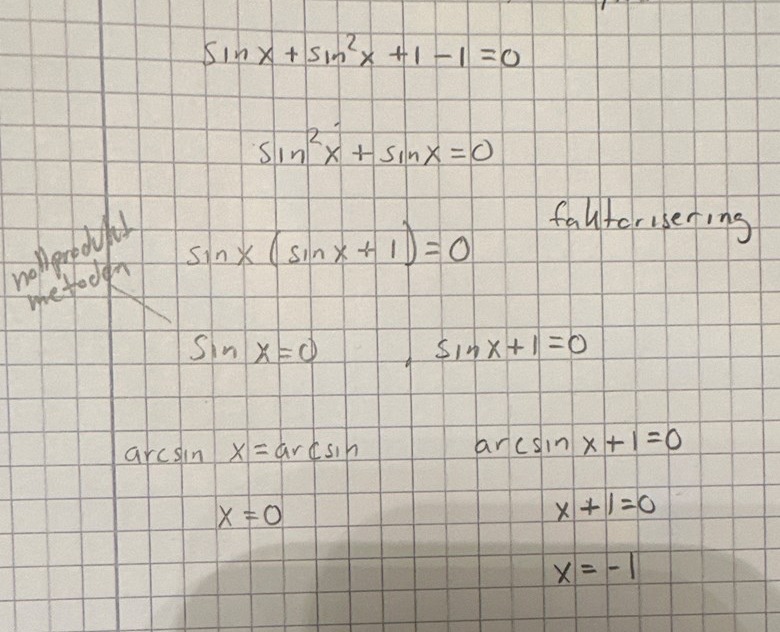 sin x + sin²x + 1 - 1 = 0
sin²x + sin x = 0
faktorisering
sin x (sin x + 1) = 0
nollprodukt
metoden
sin x = 0 , sin x + 1 = 0
arcsin x = arcsin arcsin x + 1 = 0
x = 0 x + 1 = 0
x = -1